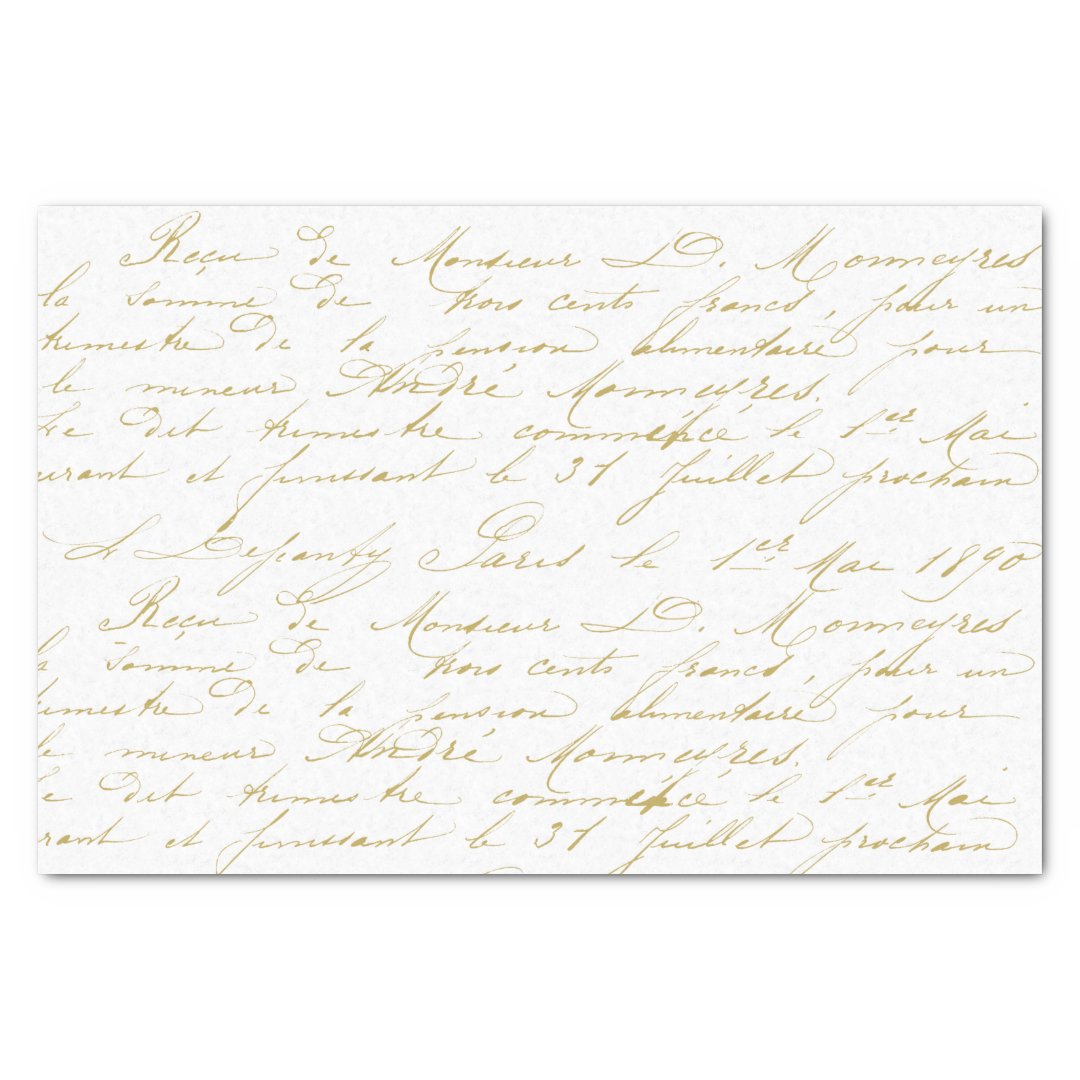 Reçu de Monsieur D. Monneyres
la Somme de trois cents francs, pour un
trimestre de la pension alimentaire pour
le mineur André Monneyres.
Le dit trimestre commencé le 1er Mai
urant et finissant le 31 Juillet prochain
Paris le 1er Mai 1890
Reçu de Monsieur D. Monneyres
la Somme de trois cents francs, pour un
imestre de la pension alimentaire pour
le mineur André Monneyres.
e dit trimestre commencé le 1er Mai
rant et finissant le 31 Juillet prochain